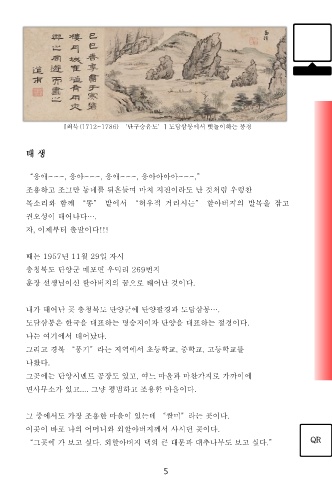 『최북(1712-1786) '단구승유도' 』도담삼봉에서 뱃놀이하는 풍경
태 생
"응애~~~, 응아~~~, 응애~~~, 응아아아아~~~."
조용하고 조그만 동네를 뒤흔들며 마치 지진이라도 난 것처럼 우렁찬
목소리와 함께 "쫑" 밭에서 "허우적 거리시는" 할아버지의 발목을 잡고
권오상이 태어나다….
자, 이제부터 출발이다!!!
때는 1957년 11월 29일 자시
충청북도 단양군 매포면 우덕리 269번지
훈장 선생님이신 할아버지의 꿈으로 태어난 것이다.
내가 태어난 곳 충청북도 단양군에 단양팔경과 도담삼봉….
도담삼봉은 한국을 대표하는 명승지이자 단양을 대표하는 절경이다.
나는 여기에서 태어났다.
그리고 경북 "풍기"라는 지역에서 초등학교, 중학교, 고등학교를
나왔다.
그곳에는 단양시멘트 공장도 있고, 여느 마을과 마찬가지로 가까이에
면사무소가 있고.... 그냥 평범하고 조용한 마을이다.
그 중에서도 가장 조용한 마을이 있는데 라는 곳이다.
이곳이 바로 나의 어머니와 외할아버지께서 사시던 곳이다.
"그곳에 가 보고 싶다. 외할아버지 댁의 큰 대문과 대추나무도 보고 싶다."
QR
5